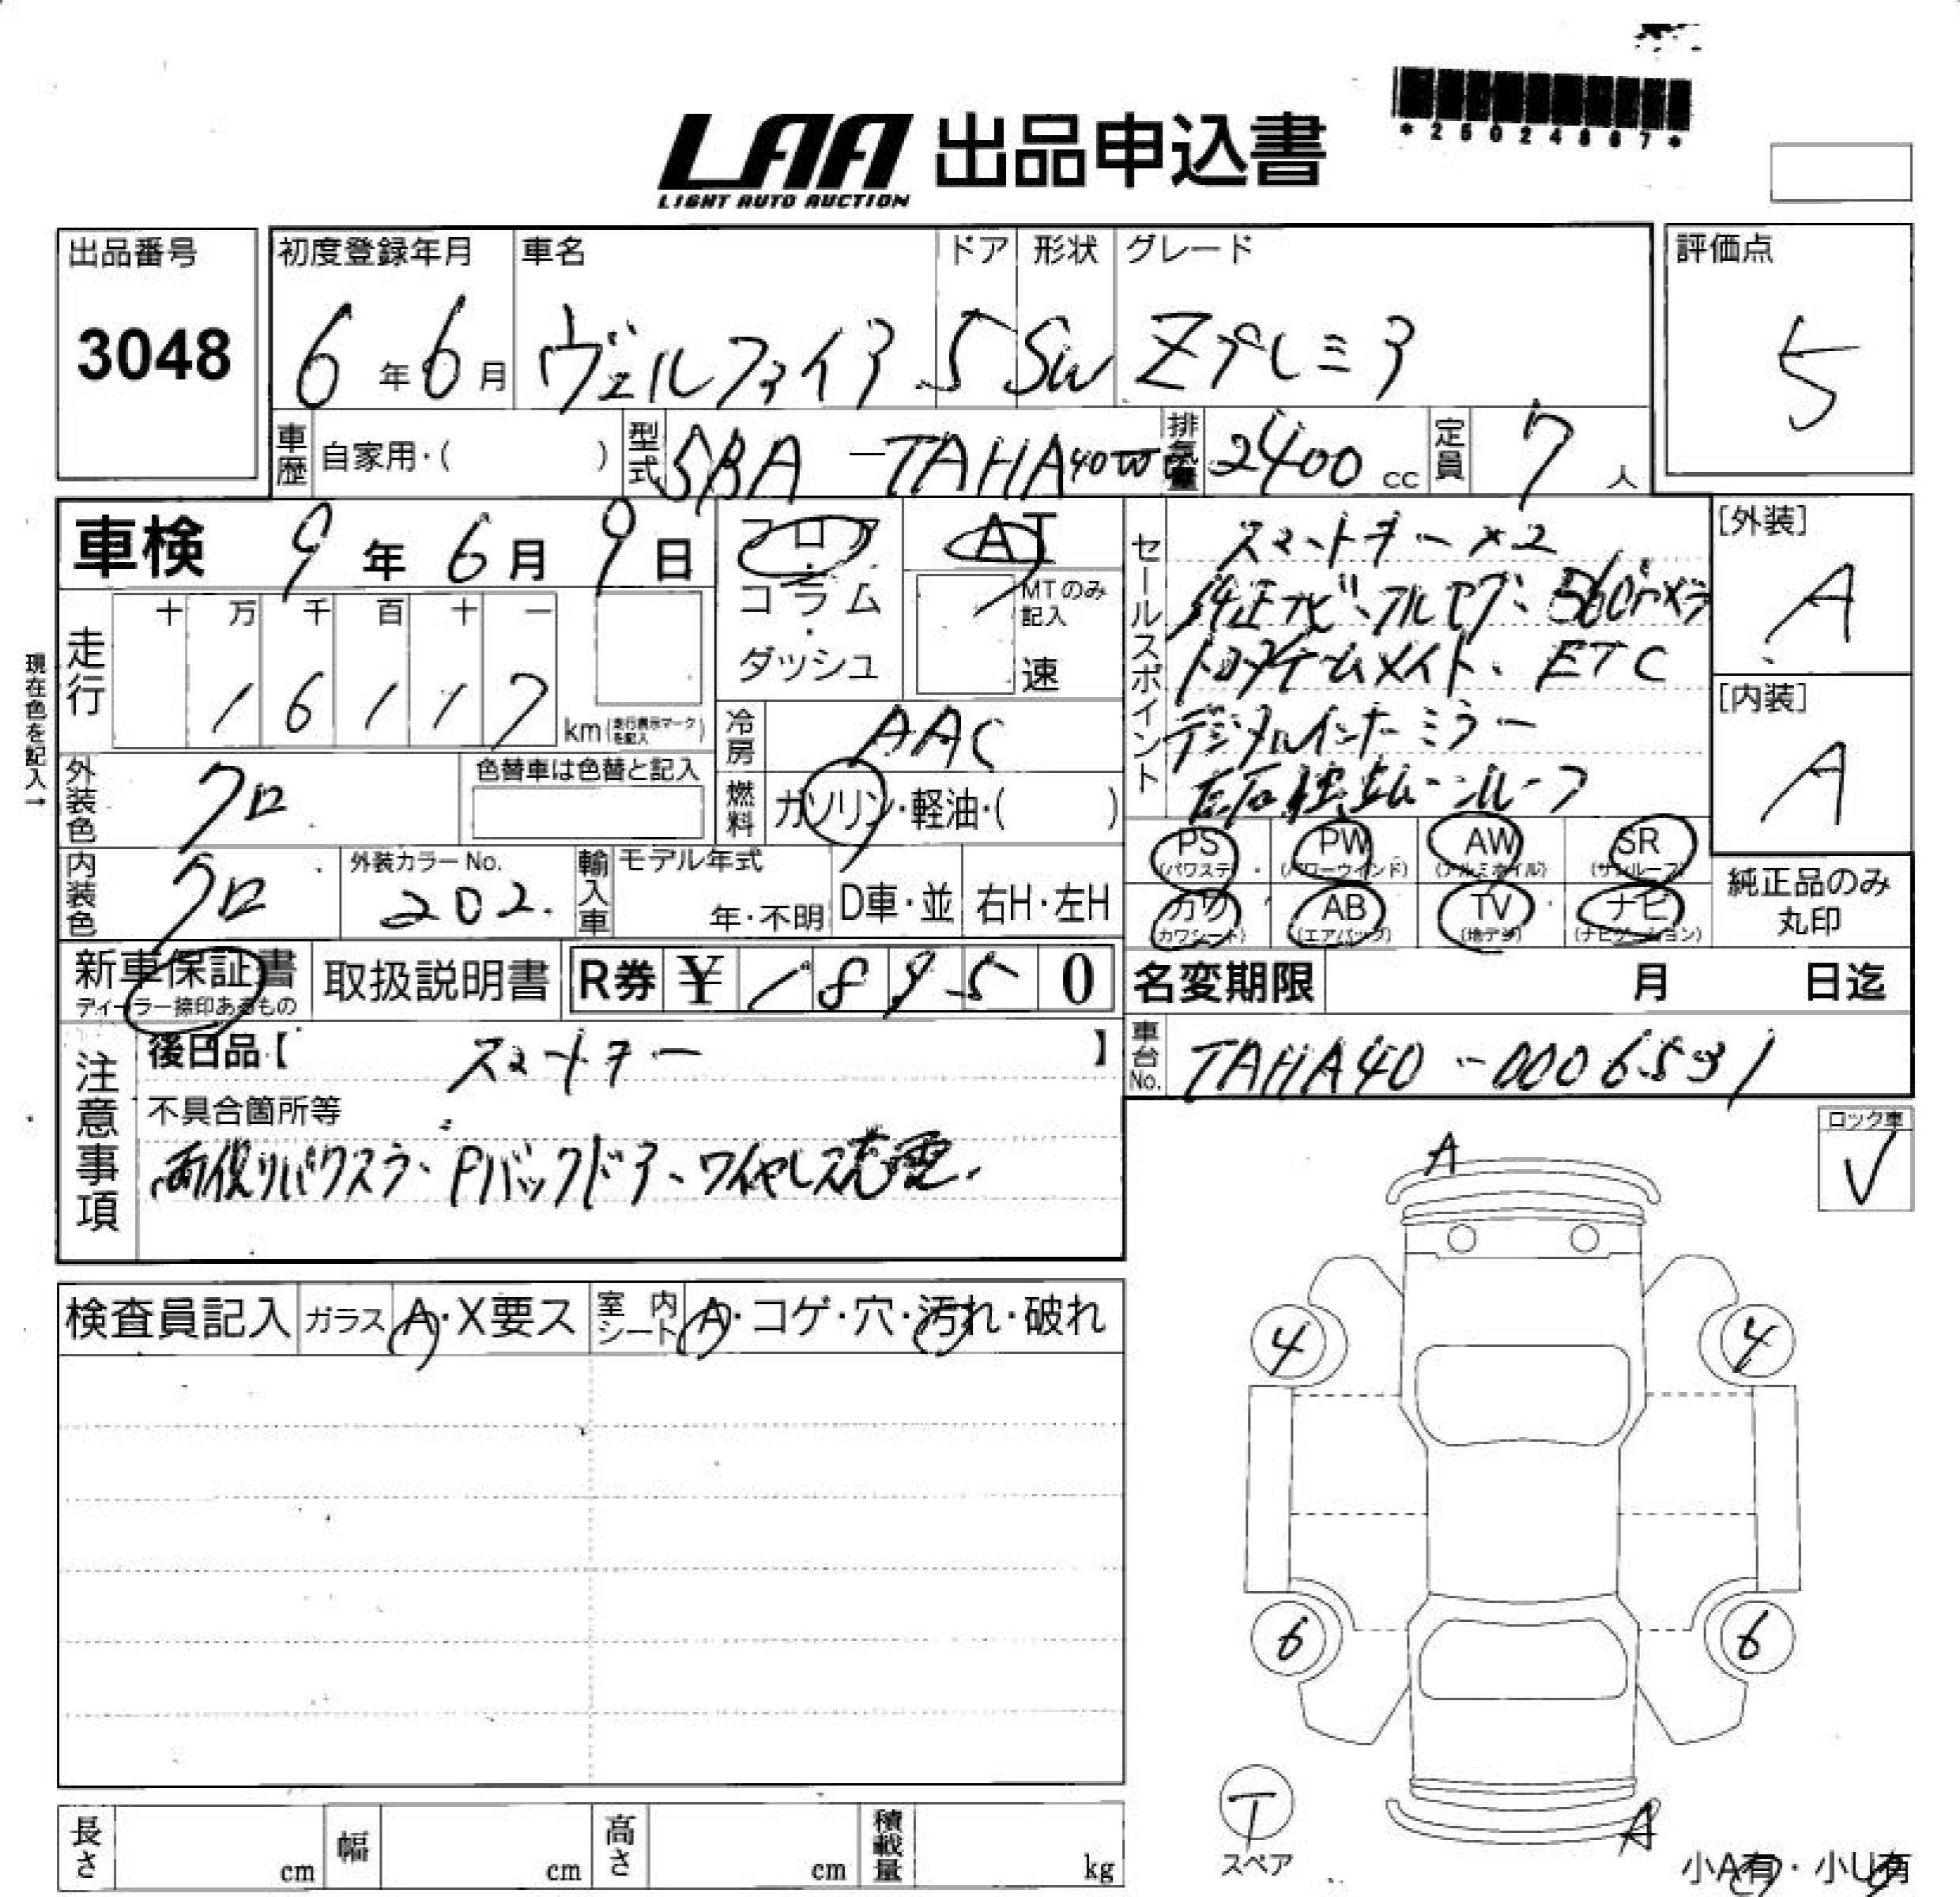 *25024867*
LAA 出品申込書
LIGHT AUTO AUCTION
出品番号 初度登録年月 車名 ドア 形状 グレード 評価点
3048 6年6月 ヴェルファイア 5 SW Zプレミア 5
車歴 自家用・( ) 型式 5BA-TAHA40W 排気量 2400cc 定員 7人
車検 9年6月9日 フロア・コラム・ダッシュ AT
MTのみ記入 速
セールスポイント スマートキー×2
純正ナビ、フルセグ、360°カメラ
トヨタチームメイト、ETC
デジタルインナーミラー
左右独立ムーンルーフ
[外装] A
[内装] A
現在色を記入→
走行 十 万 千 百 十 一
16117 km(走行表示マークを記入)
冷房 AAC
外装色 クロ 色替車は色替と記入 燃料 ガソリン・軽油・( )
PS (パワステ) PW (パワーウインド) AW (アルミホイル) SR (サンルーフ)
カワ (カワシート) AB (エアバッグ) TV (地デジ) ナビ (ナビゲーション)
純正品のみ丸印
内装色 クロ 外装カラーNo. 202. 輸入車 モデル年式 年・不明 D車・並 右H・左H
新車保証書 ディーラー捺印あるもの 取扱説明書 R券 ¥18950
名変期限 月 日迄
車台No. TAHA40-0006531
注意事項 後日品【 スマートキー 】
不具合箇所等
両側パワスラ、Pバックドア、ワイヤレス充電.
ロック車
✓
A
検査員記入 ガラス A・X要ス 室内シート A・コゲ・穴・汚れ・破れ
4 4
6 6
T
スペア
A
小A有・小U有
長さ cm 幅 cm 高さ cm 積載量 kg